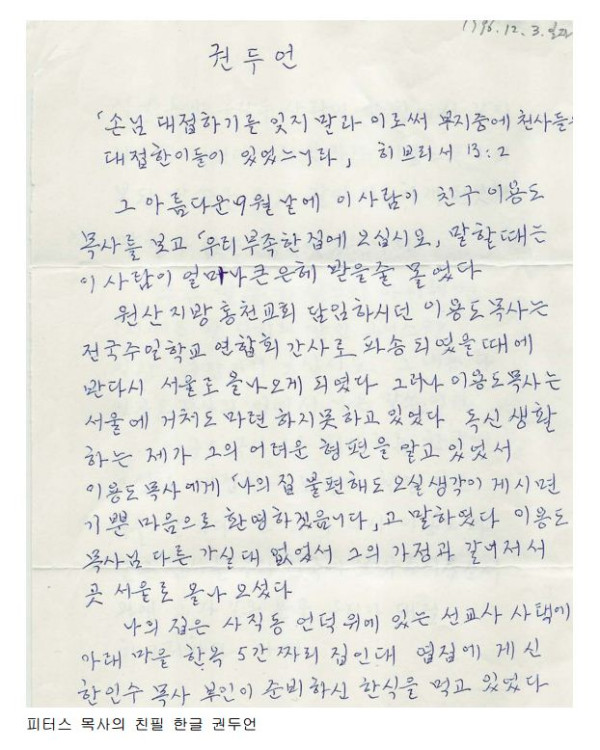 1996.12.3.
권 두 언
「손님 대접하기를 잊지 말라 이로써 부지중에 천사들을
대접한이들이 있었느니라, 히브리서 13:2
그 아름다운 9월 날에 이 사람이 친구 이용도
목사를 보고 「우리 부족한 집에 오십시요, 말할때는
이 사람이 얼마나 큰 은혜 받을줄 몰랐다
원산 지방 통천교회 담임하시던 이용도 목사는
전국주일학교 연합회 간사로 파송 되였을 때에
반다시 서울로 올나오게 되였다 그러나 이용도목사는
서울에 거처도 마련 하지못하고 있었다 독신 생활
하는 제가 그의 어려운 형편을 알고 있었서
이용도 목사에게 「나의 집 불편해도 오실생각이 게시면
기쁜 마음으로 환영하겠음니다, 고 말하였다 이용도
목사님 다른 가실대 없었서 그의 가정과 갈녀저서
곳 서울로 올나 오섰다
나의 집은 사직동 언덕 위에 있는 선교사 사택에
아래 마을 한옥 5간 짜리 집인대 엽집에 게신
한인수 목사 부인이 준비하신 한식을 먹고 있었다
피터스 목사의 친필 한글 권두언